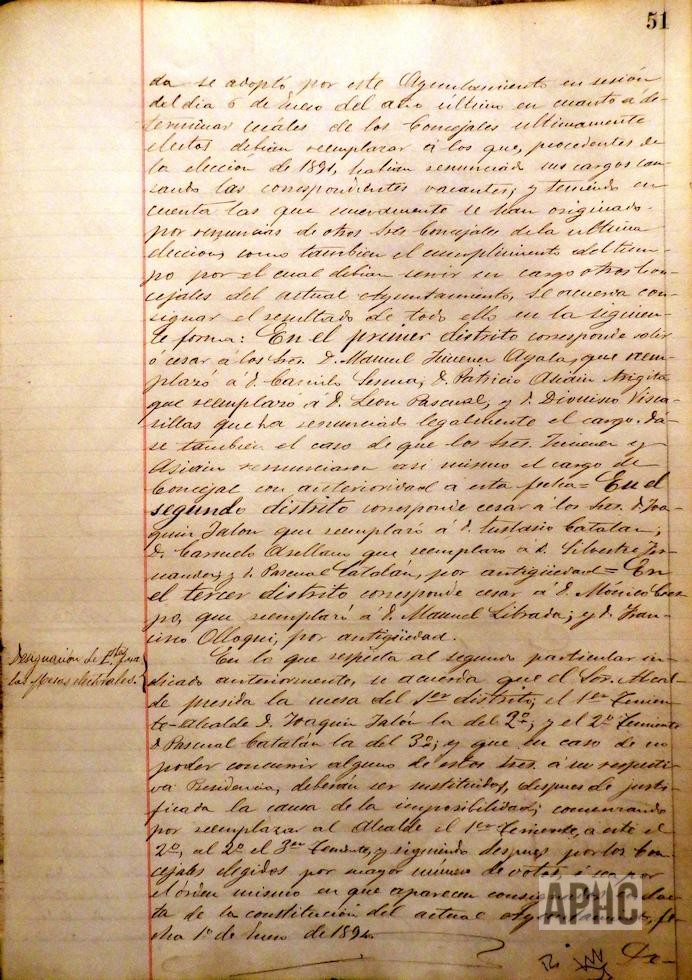 51
da se adoptó por este Ayuntamiento en sesión
del dia 6 de Enero del año último en cuanto á de-
terminar cuáles de los Concejales ultimamente
electos debian reemplazar á los que, procedentes de
la elección de 1891, habian renunciado sus cargos cau-
sando las correspondientes vacantes; y teniendo en
cuenta las que nuevamente se han originado
por renuncias de otros Sres Concejales de la ultima
eleccion, como tambien el cumplimiento del tiem-
po por el cual debian servir su cargo otros Con-
cejales del actual Ayuntamiento, se acuerda con-
signar el resultado de todo ello en la siguien-
te forma: En el primer distrito corresponde salir
ó cesar á los Sres. D. Manuel Jimenez Ayala, que reem-
plazó á D. Camilo Sesma, D. Patricio Asiain Arigita
que reemplazó á D. Leon Pascual, y D. Dionisio Visca-
sillas que ha renunciado legalmente el cargo. Dá-
se tambien el caso de que los Sres. Jimenez y
Asiain renunciaron asi mismo el cargo de
Concejal con anterioridad á esta fecha = En el
segundo distrito corresponde cesar á los Sres. D. Joa-
quin Jalon que reemplazó á D. Eustasio Catalan;
D. Consuelo Arellano que reemplazó á D. Silvestre Fer-
nandez; y D. Pascual Catalán, por antigüedad = En
el tercer distrito corresponde cesar á D. Mónico Cres-
po, que reemplazó á D. Manuel Librada; y D. Fran-
cisco Olloqui, por antigüedad.
Designacion de Ptes para
las Mesas electorales.
En lo que respecta al segundo particular in-
dicado anteriormente, se acuerda que el Sor. Alcal-
de presida la mesa del 1er distrito; el 1er Tenien-
te-Alcalde D. Joaquin Jalón la del 2º; y el 2º Teniente
D. Pascual Catalán la del 3º; y que en caso de no
poder concurrir alguno de estos Sres. á su respecti-
va Presidencia, deberán ser sustituidos, despues de justi-
ficada la causa de la imposibilidad; comenzando
por reemplazar al Alcalde el 1er Teniente, a este el
2º, al 2º el 3er Teniente, y siguiendo despues por los Con-
cejales elegidos por mayor número de votos, ó sea por
el órden mismo en que aparecen consignados
ta de la constitución del actual Ayuntamiento, fe-
cha 1º de Enero de 1894.
APHC
De-